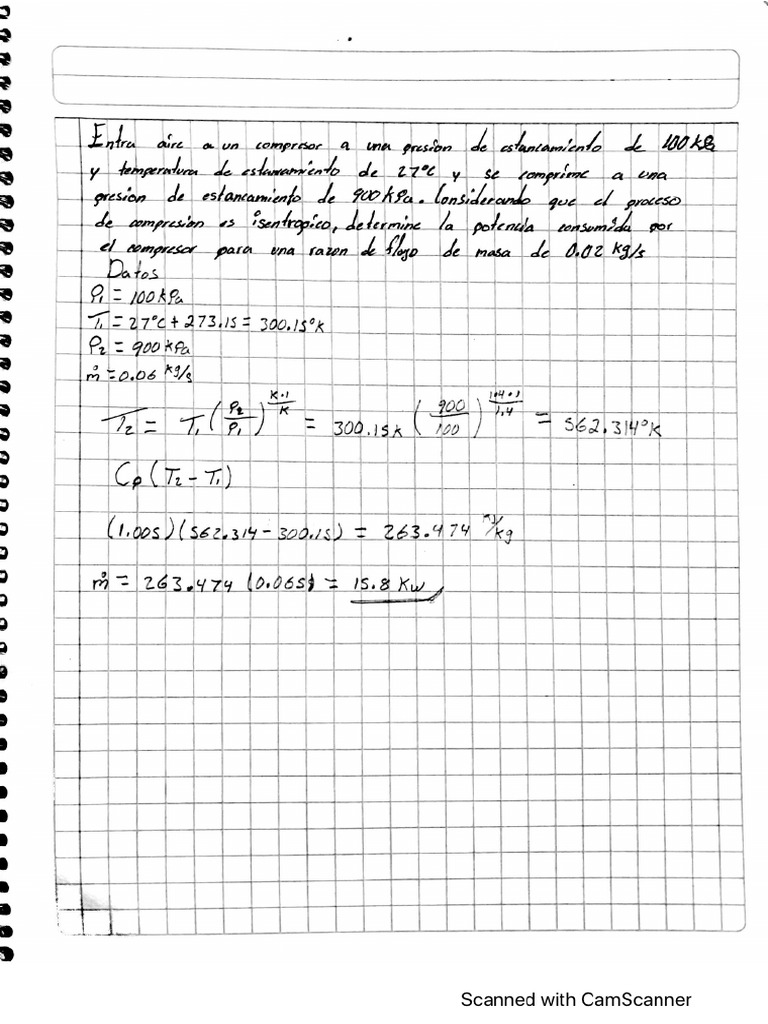 Entra aire a un compresor a una presion de estancamiento de 100 kPa
y temperatura de estancamiento de 27°C y se comprime a una
presion de estancamiento de 900 kPa. Considerando que el proceso
de compresion es isentropico, determine la potencia consumida por
el compresor para una razon de flujo de masa de 0.02 kg/s
Datos
P₁ = 100 kPa
T₁ = 27°C + 273.15 = 300.15°K
P₂ = 900 kPa
ṁ = 0.06 kg/s
T₂ = T₁ (P₂/P₁)^((K-1)/K) = 300.15K (900/100)^((1.4-1)/1.4) = 562.314°K
Cp (T₂ - T₁)
(1.005)(562.314 - 300.15) = 263.474 KJ/kg
ṁ = 263.474 (0.06s) = 15.8 Kw
Scanned with CamScanner